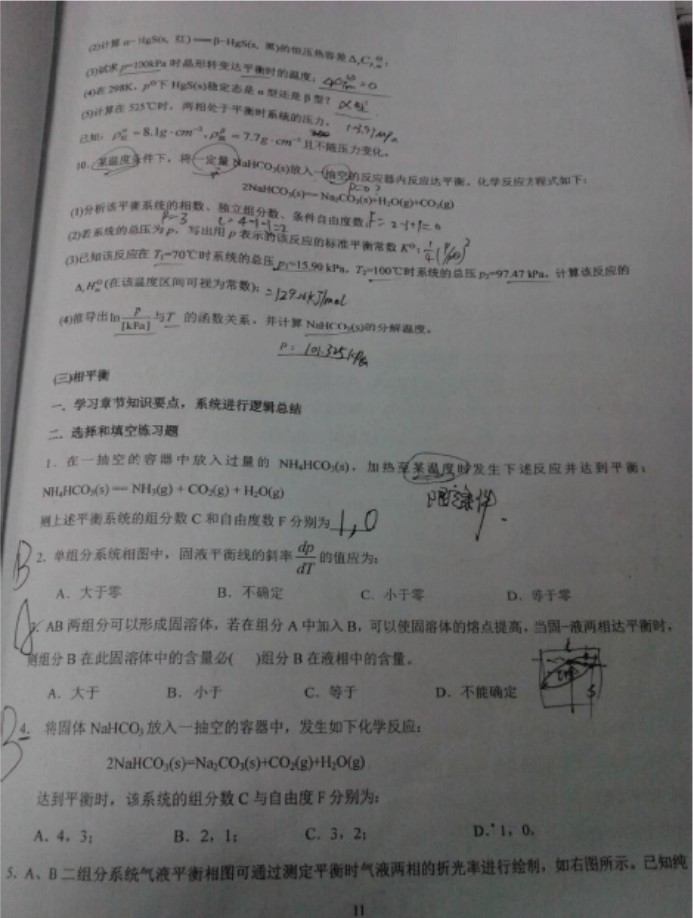 (2)计算 α-HgS(s, 红)══β-HgS(s, 黑)的恒压热容差ΔrC⊖p,m;
(3)试求 p=100kPa 时晶形转变达平衡时的温度;
(4)在 298K, p⊖下 HgS(s)稳定态是 α 型还是 β 型? α型
(5)计算在 525℃时, 两相处于平衡时系统的压力。
已知: =8.1g·cm⁻³, =7.7g·cm⁻³ 且不随压力变化。
10. 某温度条件下, 将一定量 NaHCO₃(s)放入一抽空的反应器内反应达平衡。化学反应方程式如下:
2NaHCO₃(s)══Na₂CO₃(s)+H₂O(g)+CO₂(g)
(1)分析该平衡系统的相数、独立组分数、条件自由度数; F=2-3+1=0
P=3 C=4-1-1=2
(2)若系统的总压为 p, 写出用 p 表示的该反应的标准平衡常数 K⊖; ¼(P/p⊖)²
(3)已知该反应在 T₁=70℃时系统的总压 p₁=15.90 kPa, T₂=100℃时系统的总压 p₂=97.47 kPa, 计算该反应的
ΔrH⊖m(在该温度区间可视为常数);
(4)推导出 ln p/[kPa] 与T 的函数关系。并计算 NaHCO₃(s)的分解温度。
P=101.325kPa
(三)相平衡
一、学习章节知识要点, 系统进行逻辑总结
二、选择和填空练习题
1. 在一抽空的容器中放入过量的 NH₄HCO₃(s), 加热至某温度时发生下述反应并达到平衡:
NH₄HCO₃(s)══NH₃(g) + CO₂(g) + H₂O(g)
则上述平衡系统的组分数 C 和自由度数 F 分别为 1,0
B 2. 单组分系统相图中, 固液平衡线的斜率 dp/dT 的值应为:
A. 大于零 B. 不确定 C. 小于零 D. 等于零
A 3. AB 两组分可以形成固溶体, 若在组分 A 中加入 B, 可以使固溶体的熔点提高, 当固-液两相达平衡时,
则组分 B 在此固溶体中的含量必( )组分 B 在液相中的含量。
A. 大于 B. 小于 C. 等于 D. 不能确定
B 4. 将固体 NaHCO₃ 放入一抽空的容器中, 发生如下化学反应:
2NaHCO₃(s)=Na₂CO₃(s)+CO₂(g)+H₂O(g)
达到平衡时, 该系统的组分数 C 与自由度 F 分别为:
A. 4, 3; B. 2, 1; C. 3, 2; D. 1, 0。
5. A、B 二组分系统气液平衡相图可通过测定平衡时气液两相的折光率进行绘制, 如右图所示。已知纯
11